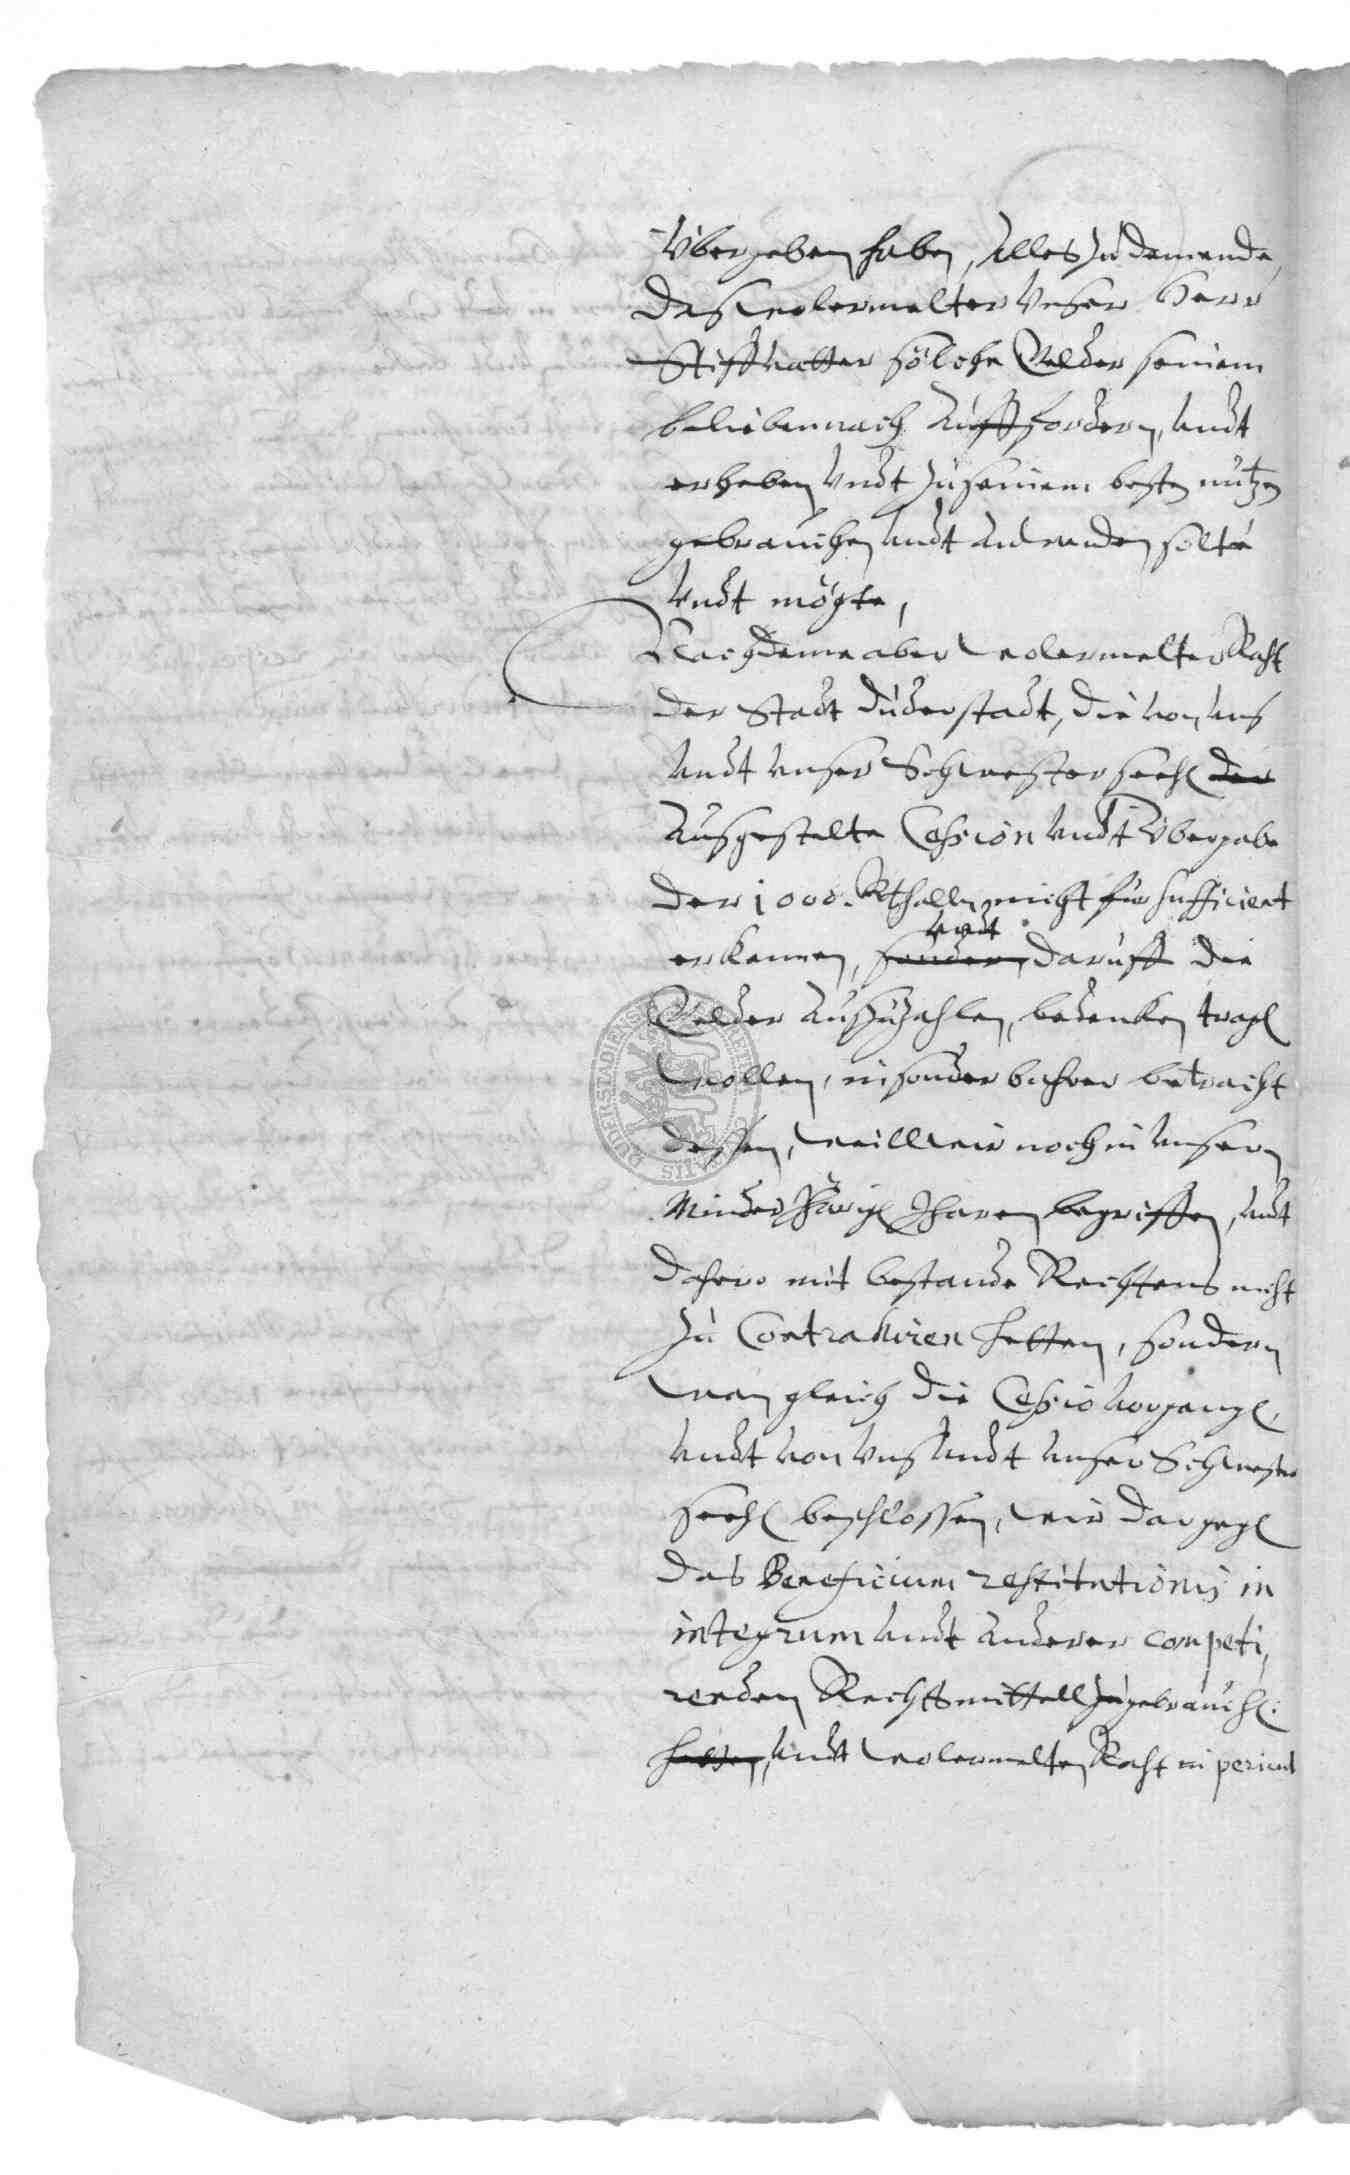 Vbergeben haben, Alles zu dem ende,
das wolermelter Vnser Herr
Stiffvatter sölche Gelder seinem
belieben nach Auffordern, vndt
erheben vndt zu seinem besten nützen
gebrauchen vndt anwenden solte
vndt mögte,
Nachdeme aber wolermelter Raht
der Stadt Duderstadt, die von vns
vndt vnser Schwester seehl der
Ausgestelte Cession vndt Vbergabe
der 1000. Rthaller nicht für sufficient
vndt
erkennen, sondern daruff die
Gelder Auszuzahlen, bedenken trag
wollen, in sonderbahrer betracht
dessen, weill wir noch in vnsern
Minder Jharen begriffen, vndt
dahero mit bestande Rechtens nicht
zu Contrahiren hetten, sondern
wan gleich die Cessio vorgang,
vndt von vns vndt vnser Schwester
seehl beschlossen, wir dargeg
das Beneficium restitutionis in
integrum vndt anderer competi,
renden Rechtsmittell zugebrauch:
hetten, vndt wolermelten Raht in pericul
DUDERSTADIENSIS CIVITATIS